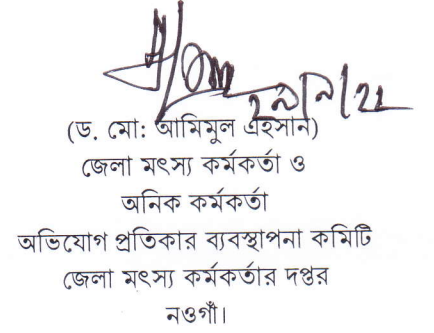 ২৯/৯/২২
(ড. মো: আমিমুল এহসান)
জেলা মৎস্য কর্মকর্তা ও
অনিক কর্মকর্তা
অভিযোগ প্রতিকার ব্যবস্থাপনা কমিটি
জেলা মৎস্য কর্মকর্তার দপ্তর
নওগাঁ।